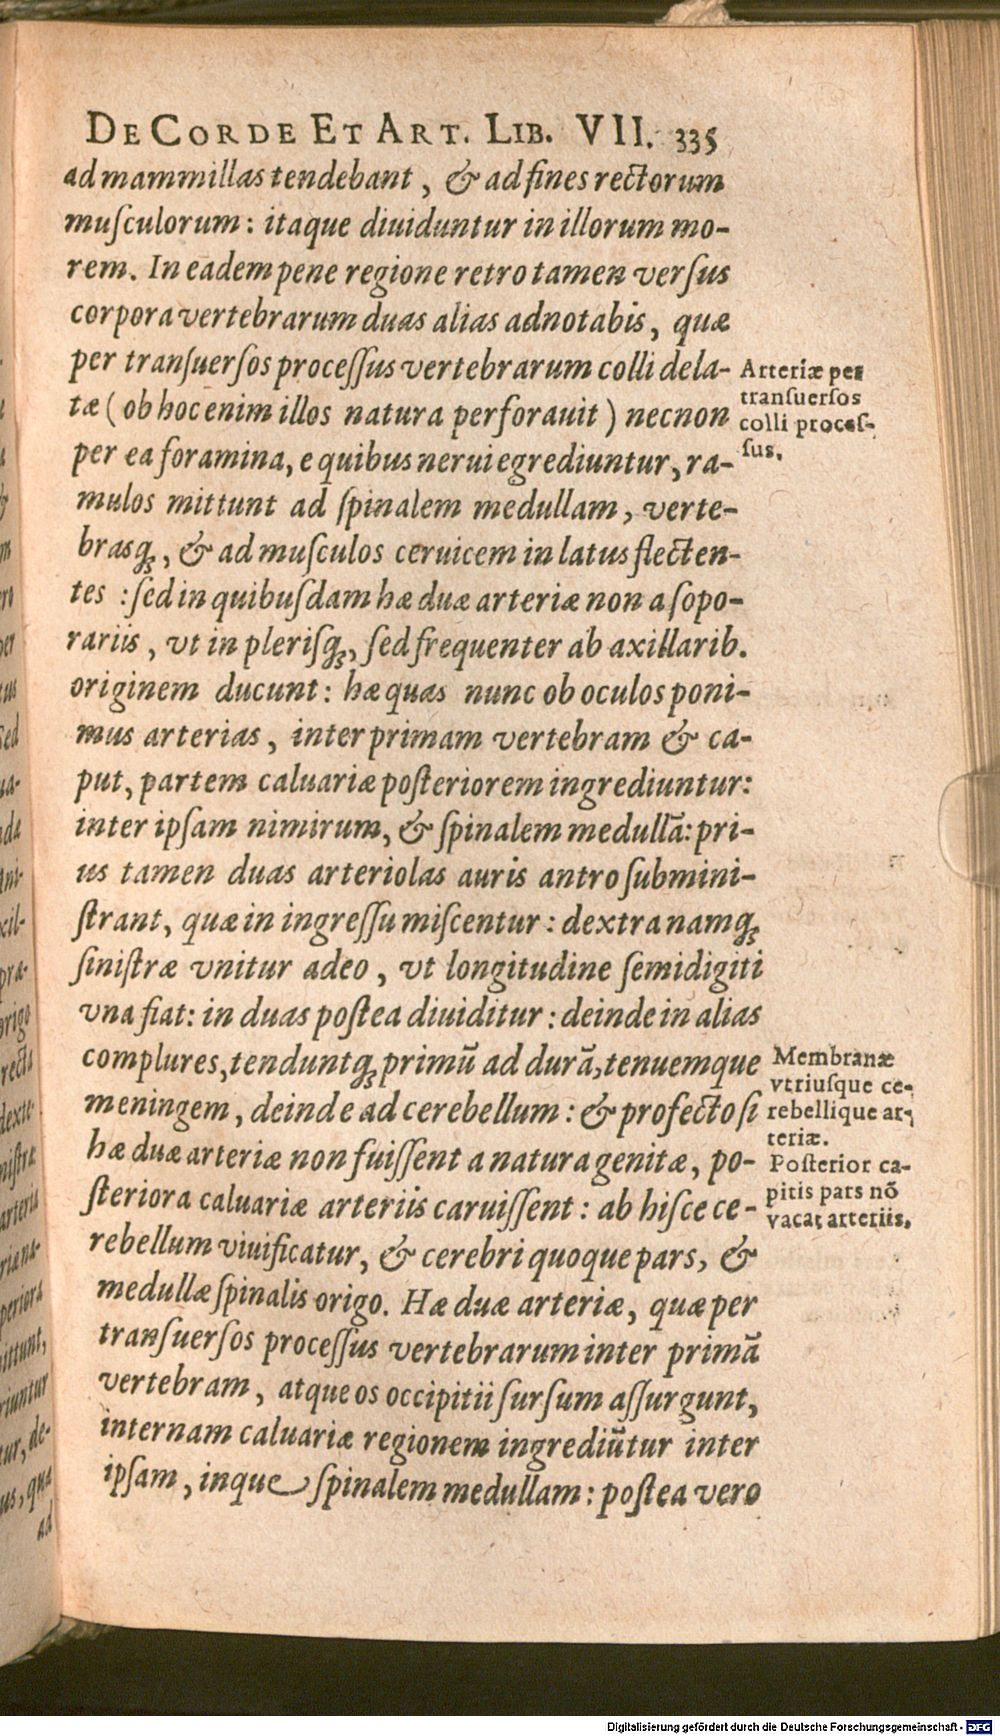 DE CORDE ET ART. LIB. VII. 335
ad mammillas tendebant, & ad fines rectorum
muſculorum: itaque diuiduntur in illorum mo-
rem. In eadem pene regione retro tamen verſus
corpora vertebrarum duas alias adnotabis, quæ
per tranſuerſos proceſſus vertebrarum colli dela-
tæ (ob hoc enim illos natura perforauit) necnon
per ea foramina, e quibus nerui egrediuntur, ra-
mulos mittunt ad ſpinalem medullam, verte-
brasq́ꝫ, & ad muſculos ceruicem in latus flecten-
tes: ſed in quibuſdam hæ duæ arteriæ non a ſopo-
rariis, vt in pleriſq́ꝫ, ſed frequenter ab axillarib.
originem ducunt: hæ quas nunc ob oculos poni-
mus arterias, inter primam vertebram & ca-
put, partem caluariæ poſteriorem ingrediuntur:
inter ipſam nimirum, & ſpinalem medullã: pri-
us tamen duas arteriolas auris antro ſubmini-
ſtrant, quæ in ingreſſu miſcentur: dextra namq́ꝫ
ſiniſtræ vnitur adeo, vt longitudine ſemidigiti
vna fiat: in duas poſtea diuiditur: deinde in alias
complures, tenduntq́ꝫ primũ ad durã, tenuemque
meningem, deinde ad cerebellum: & profecto ſi
hæ duæ arteriæ non fuiſſent a natura genitæ, po-
ſteriora caluariæ arteriis caruiſſent: ab hiſce ce-
rebellum viuificatur, & cerebri quoque pars, &
medullæ ſpinalis origo. Hæ duæ arteriæ, quæ per
tranſuerſos proceſſus vertebrarum inter primã
vertebram, atque os occipitii ſurſum aſſurgunt,
internam caluariæ regionem ingrediũtur inter
ipſam, inque ſpinalem medullam: poſtea vero
Arteriæ per
tranſuerſos
colli proceſ-
ſus.
Membranæ
vtriuſque ce-
rebellique ar-
teriæ.
Poſterior ca-
pitis pars nõ
vacat arteriis.
Digitalisierung gefördert durch die Deutsche Forschungsgemeinschaft - DFG